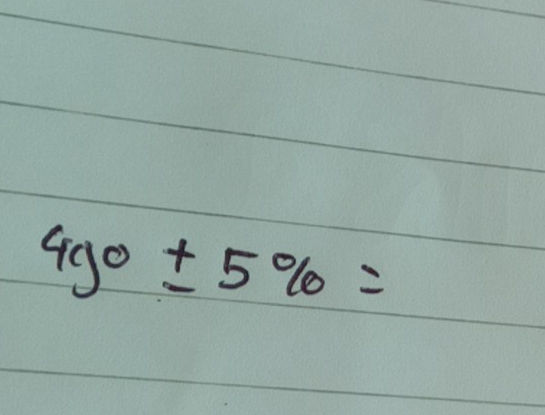 490 ± 5% =